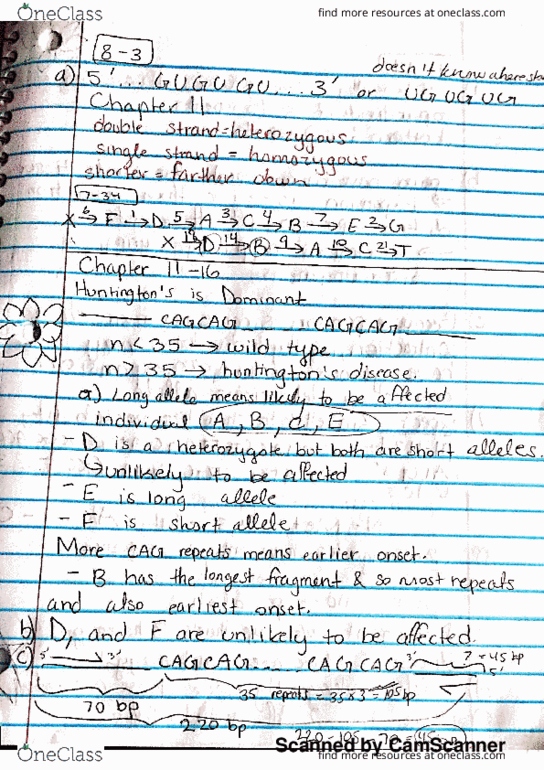 OneClass
find more resources at oneclass.com
8-3
doesn't know where sta
a) 5' ... GUGUGU ... 3' or UGUGUG
Chapter 11
double strand = heterozygous
single strand = homozygous
shorter = farther down
7-34
X 6→ F 1→ D 5→ A 3→ C 4→ B 7→ E 2→ G
X → D 14→ B 9→ A → C 21→ T
Chapter 11-16
Huntington's is Dominant
CAGCAG ... CAGCAG
n < 35 → wild type
n > 35 → huntington's disease.
a) Long allele means likely to be affected
individual A, B, C, E
- D is a heterozygote but both are short alleles.
↳ unlikely to be affected
- E is long allele
- F is short allele
More CAG repeats means earlier onset.
- B has the longest fragment & so most repeats
and also earliest onset.
b) D, and F are unlikely to be affected.
c) 5' → 3' CAGCAG ... CAGCAG 3' ? = 45 bp
5'
35 repeats = 35x3 = 105 bp
70 bp
220 bp
220-105-70 = 45
Scanned by CamScanner
OneClass
find more resources at oneclass.com